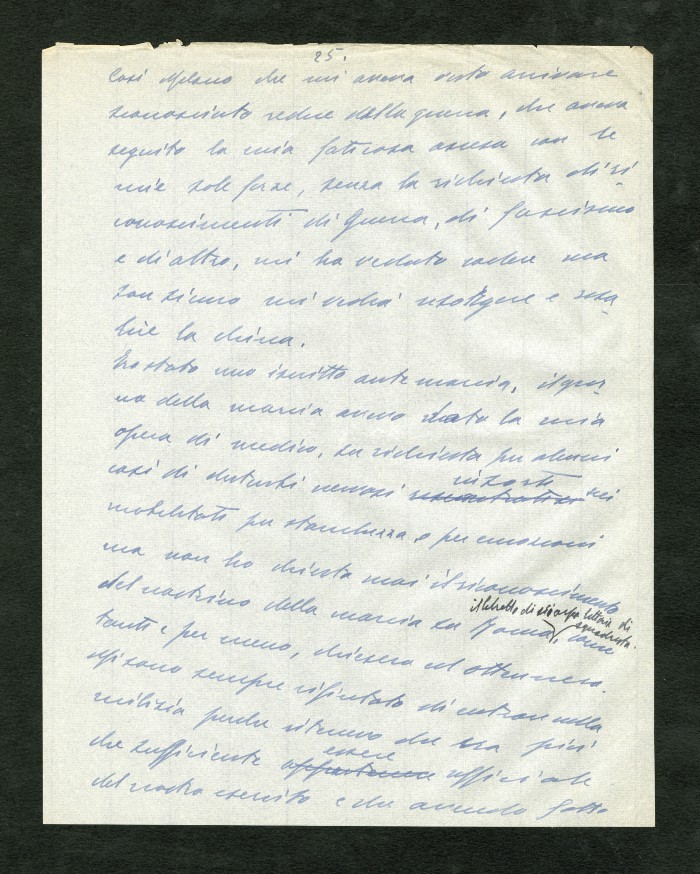 25.
Così Milano che mi aveva visto arrivare
sconosciuto reduce dalla guerra, che aveva
seguito la mia faticosa ascesa con le
mie sole forze, senza la richiesta di ri
conoscimenti di guerra, di fascismo
e di altro, mi ha veduto cadere ma
non mi vedrà risorgere e risa
lire la china.
Ero stato uno iscritto antemarcia, il gior
no della marcia avevo dato la mia
opera di medico, su richiesta per alcuni
casi di disturbi nervosi
insorti nei
mobilitati per stanchezza o per emozioni
ma non ho chiesto mai il riconoscimento
del nastrino della marcia su Roma, come
il libretto di sciarpa littorio di
squadrista.
tanti e per meno, chiesero ed ottennero.
Mi sono sempre rifiutato di entrare nella
milizia perché ritenevo che era più
che sufficiente essere ufficiale
del nostro esercito e che avendo fatto